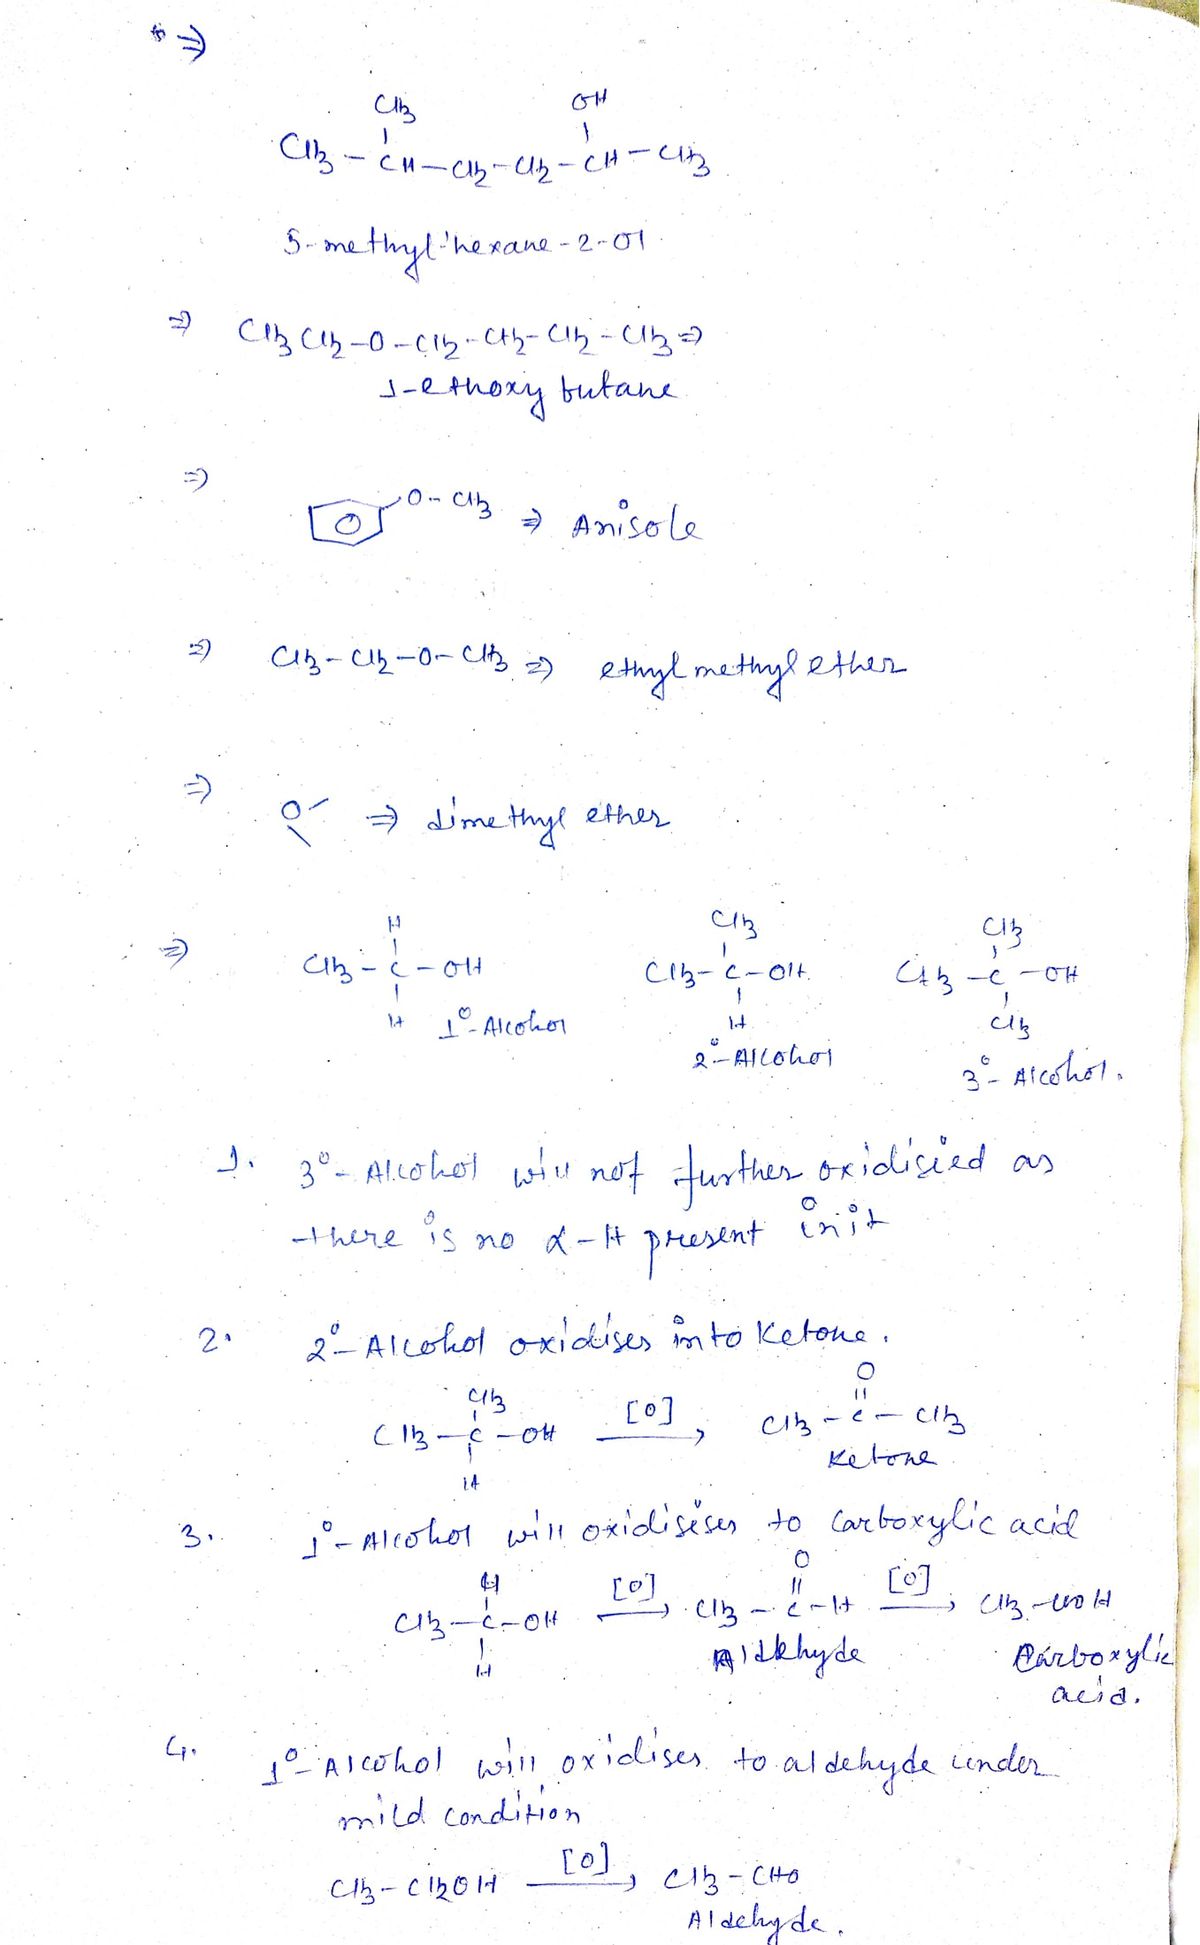 ⇒
CH3 OH
CH3 – CH – CH2 – CH2 – CH – CH3
5-methyl hexane-2-ol
⇒ CH3 CH2 – O – CH2 – CH2 – CH2 – CH3 ⇒
1-ethoxy butane
⇒
O – CH3 ⇒ Anisole
⇒ CH3 – CH2 – O – CH3 ⇒ ethyl methyl ether
⇒
O ⇒ dimethyl ether
H CH3 CH3
⇒ CH3 – C – OH CH3 – C – OH CH3 – C – OH
H H CH3
1°-Alcohol 2°-Alcohol 3°-Alcohol.
1. 3°-Alcohol will not further oxidisied as
there is no α-H present init
2. 2°-Alcohol oxidises into Ketone.
CH3 O
CH3 – C – OH [O] CH3 – C – CH3
H Ketone
3. 1°-Alcohol will oxidisises to Carboxylic acid
H O
CH3 – C – OH [O] CH3 – C – H [O] CH3 – COOH
H Aldehyde Carboxylic
acid.
4. 1°-Alcohol will oxidises to aldehyde under
mild condition
CH3 – CH2OH [O] CH3 – CHO
Aldehyde.